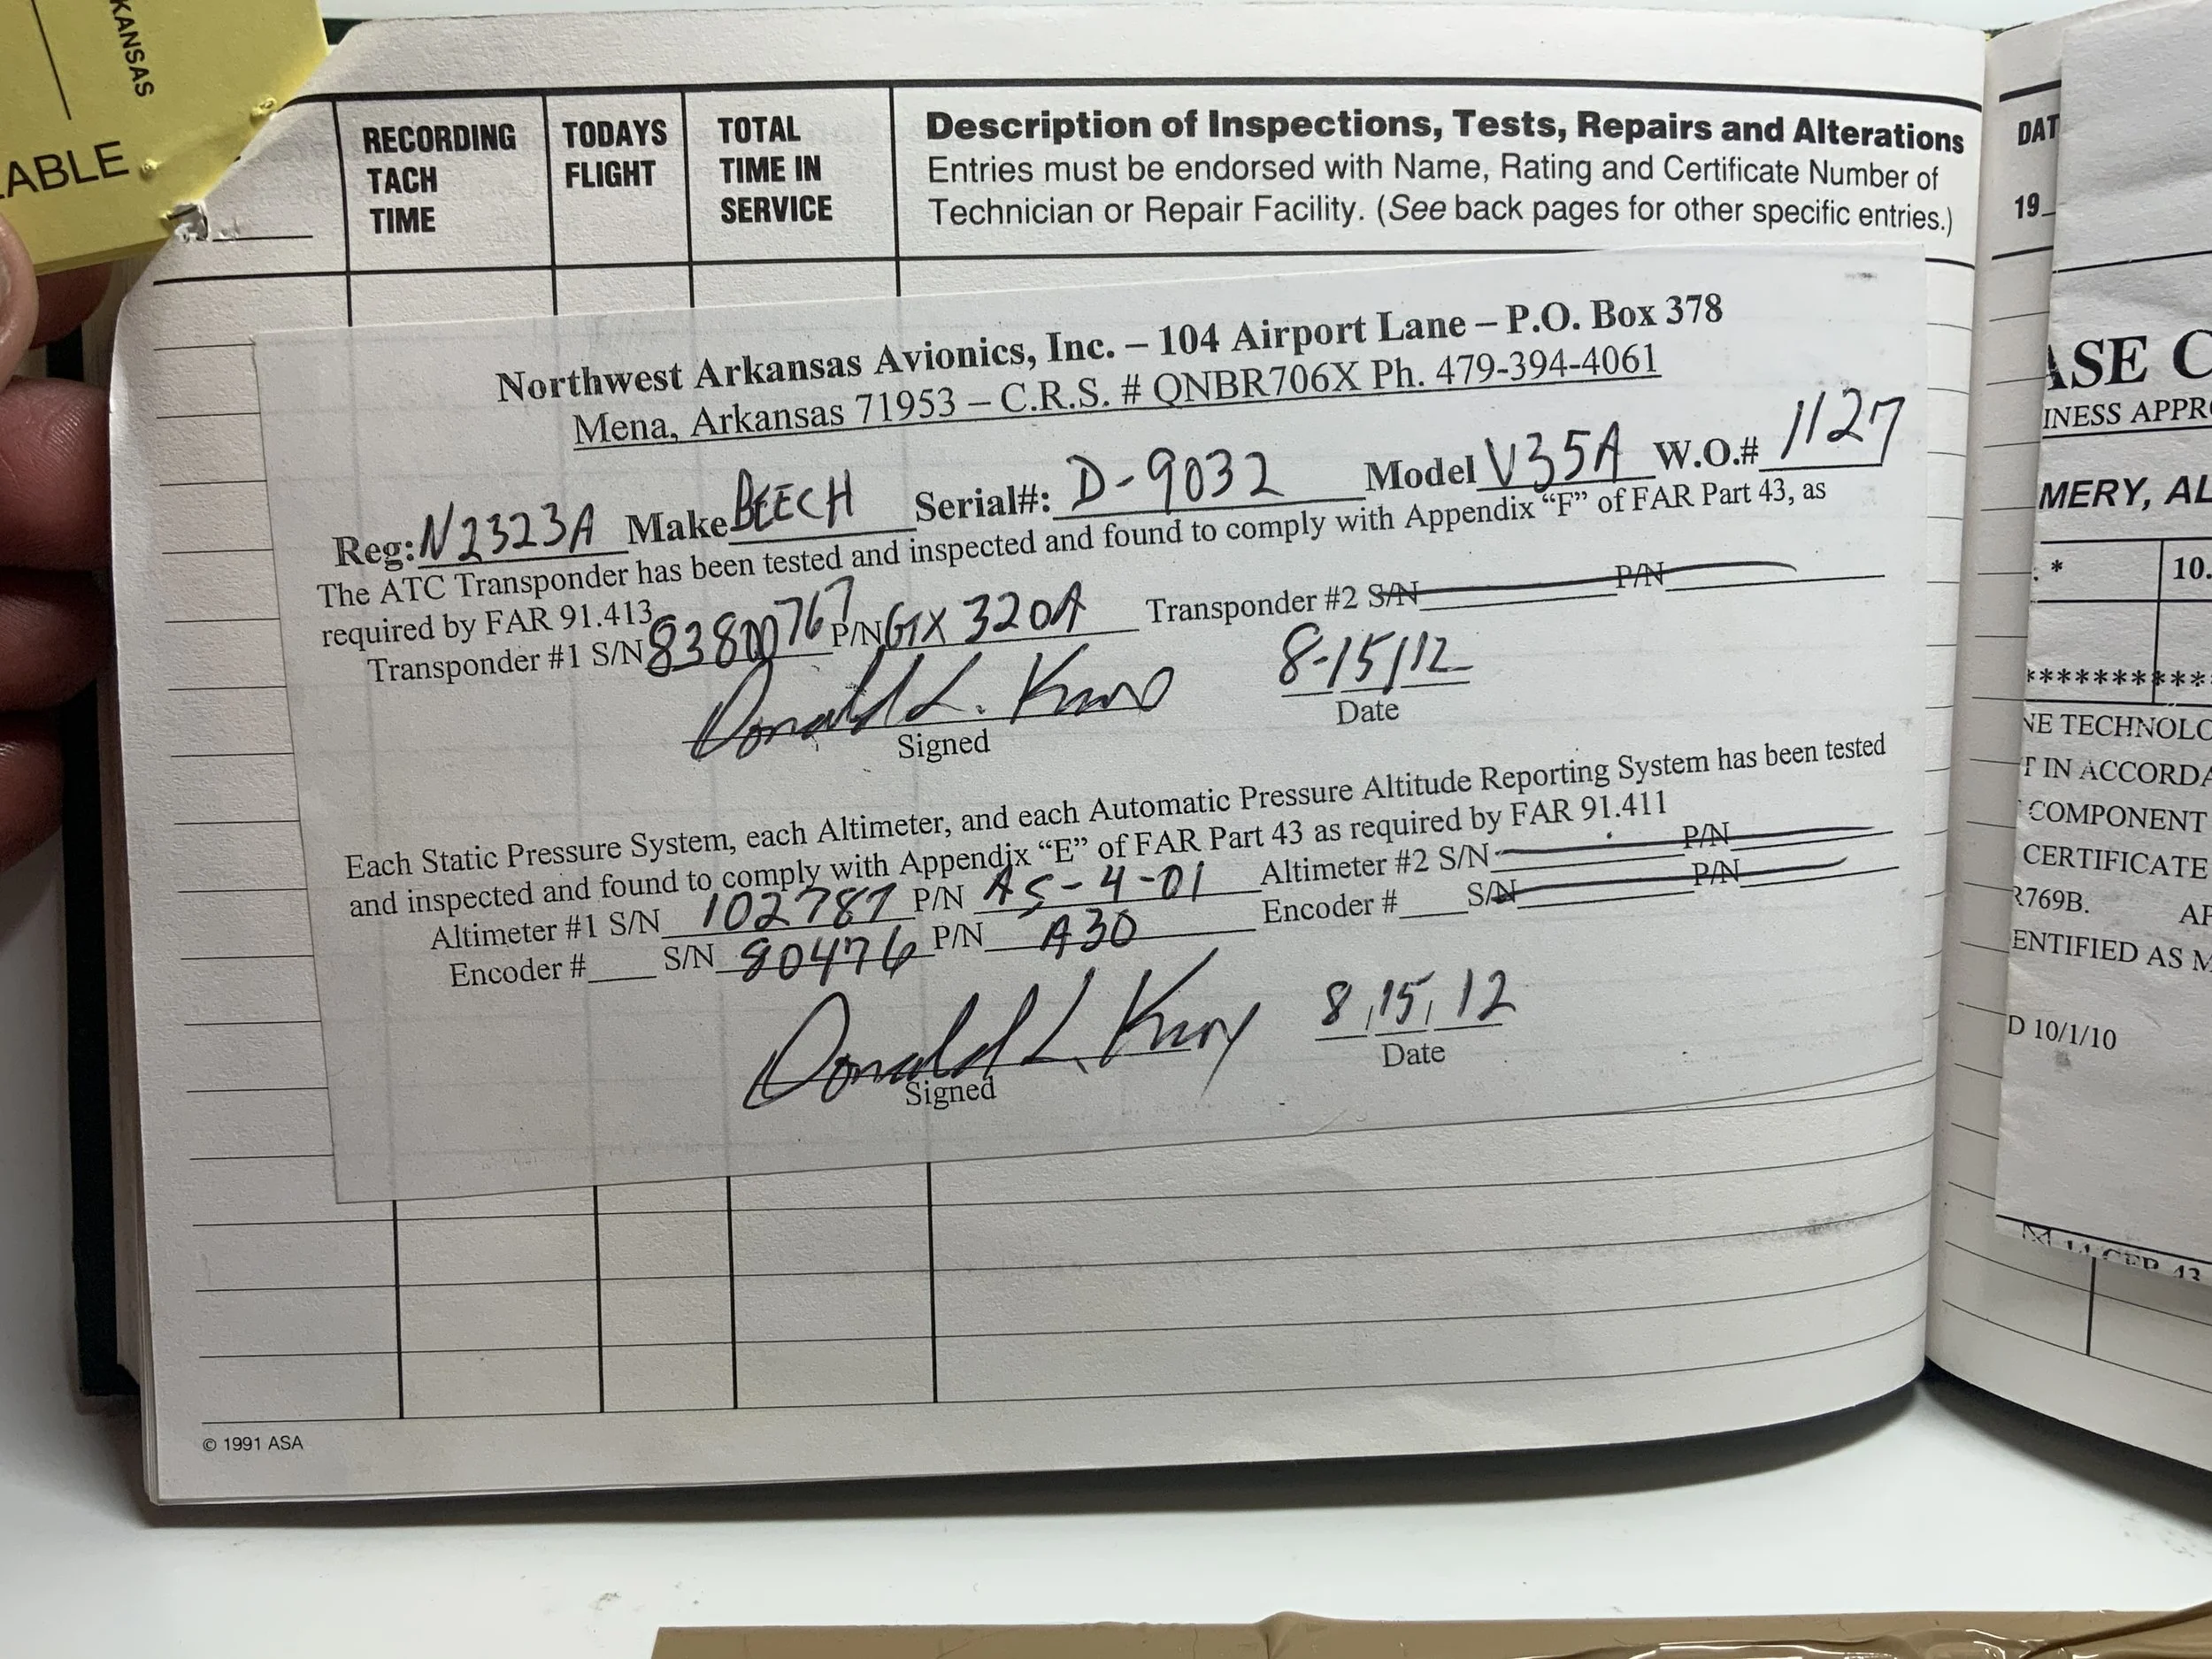 KANSAS
ABLE
RECORDING TACH TIME
TODAYS FLIGHT
TOTAL TIME IN SERVICE
Description of Inspections, Tests, Repairs and Alterations
Entries must be endorsed with Name, Rating and Certificate Number of
Technician or Repair Facility. (See back pages for other specific entries.)
Northwest Arkansas Avionics, Inc. – 104 Airport Lane – P.O. Box 378
Mena, Arkansas 71953 – C.R.S. # QNBR706X Ph. 479-394-4061
Reg: N2323A Make BEECH Serial#: D-9032 Model V35A W.O.# 1127
The ATC Transponder has been tested and inspected and found to comply with Appendix “F” of FAR Part 43, as
required by FAR 91.413
Transponder #1 S/N 83800767 P/N GTX 320A Transponder #2 S/N P/N
Donald L. 8-15/12
Signed Date
Each Static Pressure System, each Altimeter, and each Automatic Pressure Altitude Reporting System has been tested
and inspected and found to comply with Appendix “E” of FAR Part 43 as required by FAR 91.411
Altimeter #1 S/N 102787 P/N AS-4-01 Altimeter #2 S/N P/N
Encoder # S/N 80476 P/N A30 Encoder # S/N P/N
Donald L. 8,15, 12
Signed Date
© 1991 ASA
DAT
19
ASE C
INESS APPR
MERY, AL
. * 10.
**********
NE TECHNOLO
T IN ACCORDA
COMPONENT
CERTIFICATE
R769B. AF
ENTIFIED AS M
D 10/1/10
14 CFR 43